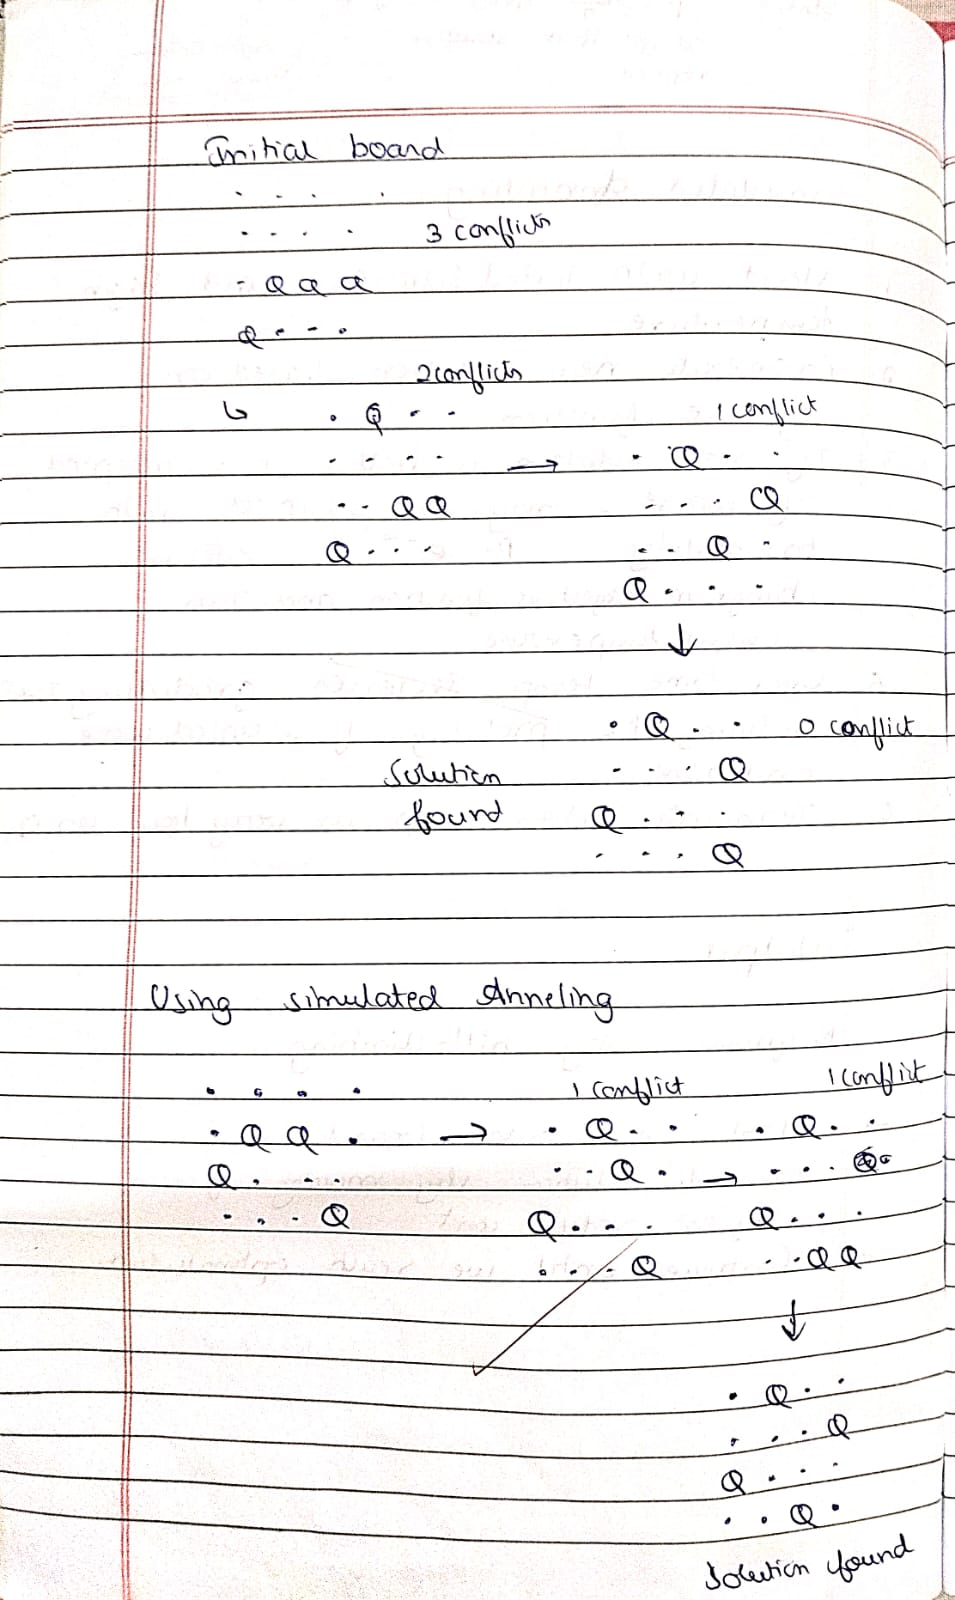 Initial board
. . . .
. . . . 3 conflicts
. Q Q Q
Q . . .
2 conflicts
↳ . Q . . 1 conflict
. . . . → . Q . .
. . Q Q . . . Q
Q . . . . . Q .
Q . . .
↓
. Q . . 0 conflict
Solution . . . Q
found Q . . .
. . . Q
Using simulated Anneling
. . . . 1 conflict 1 conflict
. Q Q . → . Q . . . Q . .
Q . . . . . Q . → . . . Q
. . . Q Q . . . Q . . .
. . . Q . . Q Q
↓
. Q . .
. . . Q
Q . . .
. . Q .
Solution found